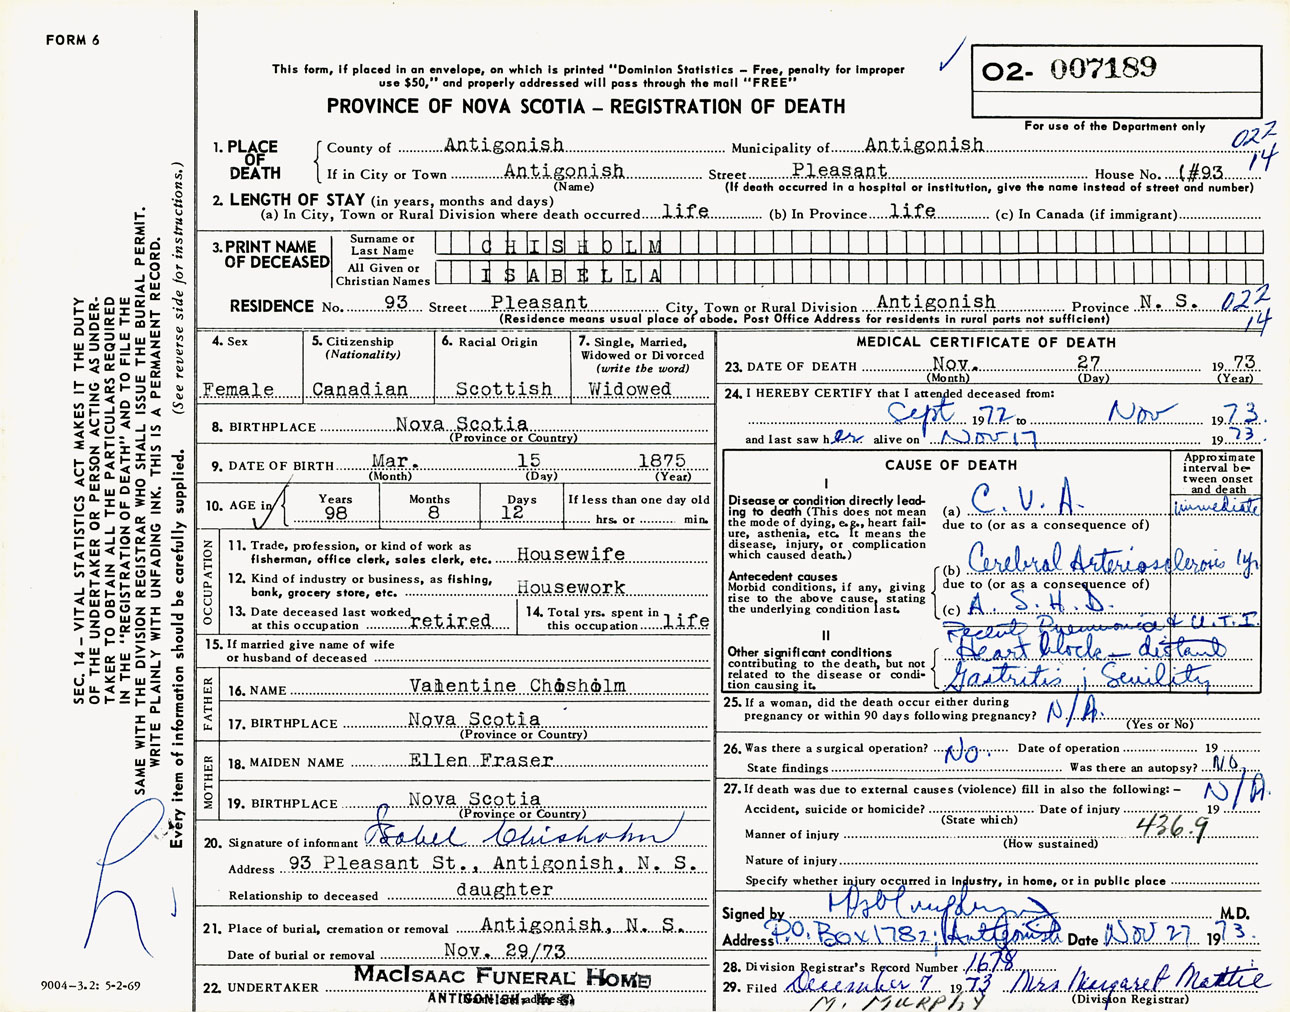 FORM 6
This form, if placed in an envelope, on which is printed "Dominion Statistics – Free, penalty for improper
use $50," and properly addressed will pass through the mail "FREE"
PROVINCE OF NOVA SCOTIA – REGISTRATION OF DEATH
02- 007189
For use of the Department only
SEC. 14 – VITAL STATISTICS ACT MAKES IT THE DUTY
OF THE UNDERTAKER OR PERSON ACTING AS UNDER-
TAKER TO OBTAIN ALL THE PARTICULARS REQUIRED
IN THE "REGISTRATION OF DEATH" AND TO FILE THE
SAME WITH THE DIVISION REGISTRAR WHO SHALL ISSUE THE BURIAL PERMIT.
WRITE PLAINLY WITH UNFADING INK. THIS IS A PERMANENT RECORD.
Every item of information should be carefully supplied. (See reverse side for instructions.)
1. PLACE OF DEATH County of Antigonish Municipality of Antigonish 022
If in City or Town Antigonish Street Pleasant House No. (#93 14
(Name) (If death occurred in a hospital or institution, give the name instead of street and number)
2. LENGTH OF STAY (in years, months and days)
(a) In City, Town or Rural Division where death occurred life (b) In Province life (c) In Canada (if immigrant)
3. PRINT NAME OF DECEASED Surname or Last Name CHISHOLM
All Given or Christian Names ISABELLA
RESIDENCE No. 93 Street Pleasant City, Town or Rural Division Antigonish Province N. S. 022
(Residence means usual place of abode. Post Office Address for residents in rural parts not sufficient) 14
4. Sex Female
5. Citizenship (Nationality) Canadian
6. Racial Origin Scottish
7. Single, Married, Widowed or Divorced (write the word) Widowed
8. BIRTHPLACE Nova Scotia
(Province or Country)
9. DATE OF BIRTH Mar. 15 1875
(Month) (Day) (Year)
10. AGE in Years 98 Months 8 Days 12 If less than one day old
hrs. or min.
OCCUPATION
11. Trade, profession, or kind of work as
fisherman, office clerk, sales clerk, etc. Housewife
12. Kind of industry or business, as fishing,
bank, grocery store, etc. Housework
13. Date deceased last worked
at this occupation retired
14. Total yrs. spent in
this occupation life
15. If married give name of wife
or husband of deceased
FATHER
16. NAME Valentine Chisholm
17. BIRTHPLACE Nova Scotia
(Province or Country)
MOTHER
18. MAIDEN NAME Ellen Fraser
19. BIRTHPLACE Nova Scotia
(Province or Country)
20. Signature of informant Isabel Chisholm
Address 93 Pleasant St., Antigonish, N. S.
Relationship to deceased daughter
21. Place of burial, cremation or removal Antigonish, N. S.
Date of burial or removal Nov. 29/73
22. UNDERTAKER MACISAAC FUNERAL HOME
ANTIGONISH, N. S.
MEDICAL CERTIFICATE OF DEATH
23. DATE OF DEATH Nov. 27 1973
(Month) (Day) (Year)
24. I HEREBY CERTIFY that I attended deceased from:
Sept 1972 to Nov 1973.
and last saw her alive on Nov 17 1973.
CAUSE OF DEATH
Approximate interval between onset and death
I
Disease or condition directly lead-
ing to death (This does not mean
the mode of dying, e.g., heart fail-
ure, asthenia, etc. It means the
disease, injury, or complication
which caused death.)
(a) C. V. A. immediate
due to (or as a consequence of)
Antecedent causes
Morbid conditions, if any, giving
rise to the above cause, stating
the underlying condition last.
(b) Cerebral Arteriosclerosis 1yr
due to (or as a consequence of)
(c) A. S. H. D.
II
Other significant conditions
contributing to the death, but not
related to the disease or condi-
tion causing it.
Recent Pneumonia & U.T.I.
Heart block – distant
Gastritis; Senility
25. If a woman, did the death occur either during
pregnancy or within 90 days following pregnancy? N/A.
(Yes or No)
26. Was there a surgical operation? No. Date of operation 19
State findings Was there an autopsy? No.
27. If death was due to external causes (violence) fill in also the following: – N/A.
Accident, suicide or homicide? Date of injury 19
(State which)
Manner of injury 436.9
(How sustained)
Nature of injury
Specify whether injury occurred in industry, in home, or in public place
Signed by M.D.
Address P.O. Box 1782, Antigonish Date Nov 27 1973.
28. Division Registrar's Record Number 1678
29. Filed December 7 1973 Mrs Margaret Mattie
(Division Registrar)
M. MURPHY
9004–3.2: 5-2-69